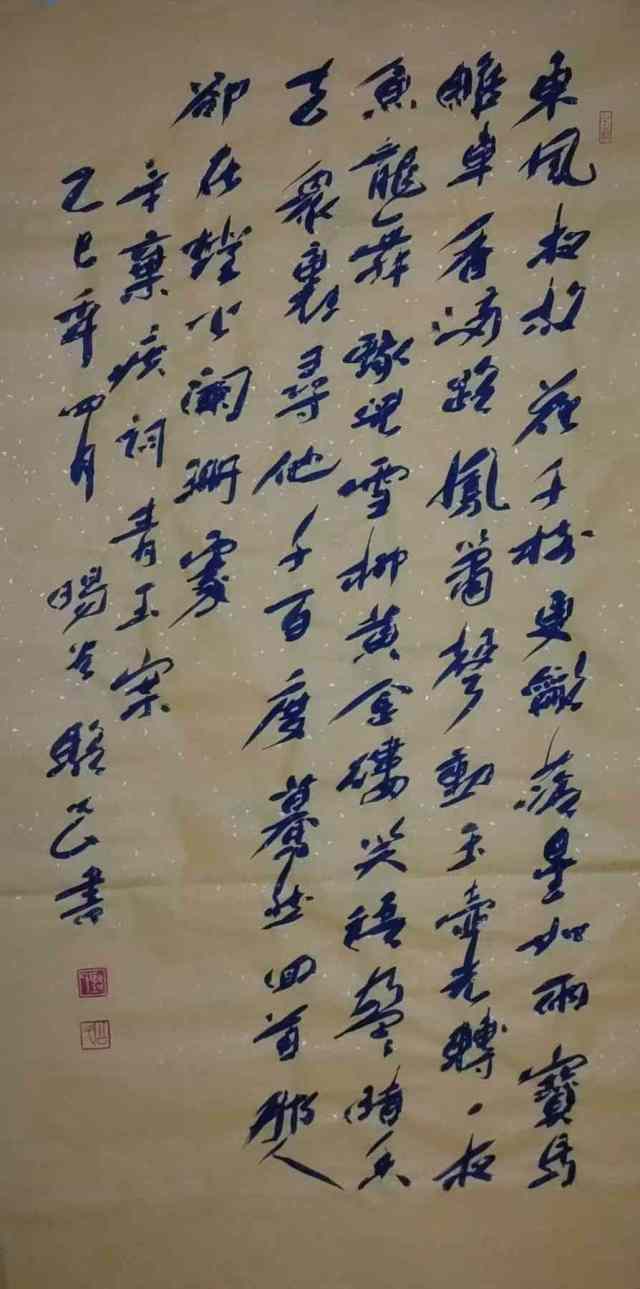 東風夜放花千樹更龡落星如雨寶馬
雕車香滿路鳳簫聲動玉壺光轉一夜
魚龍舞蛾兒雪柳黃金縷笑語盈盈暗香
去眾裏尋他千百度驀然回首那人
卻在燈火闌珊處
辛棄疾詞青玉案
乙巳年四月暘谷駱書